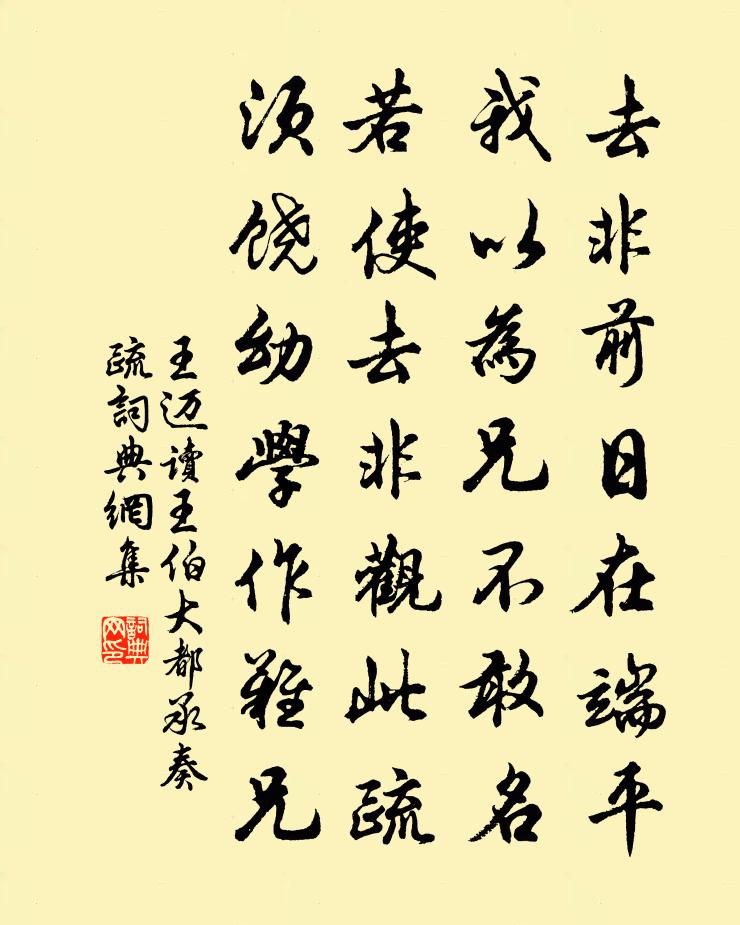 去非前日在端平
我以為兄不敢名
若使去非觀此疏
須饒幼學作難兄
王迈讀王伯大都承奏
疏詞典網集
詞典
网印